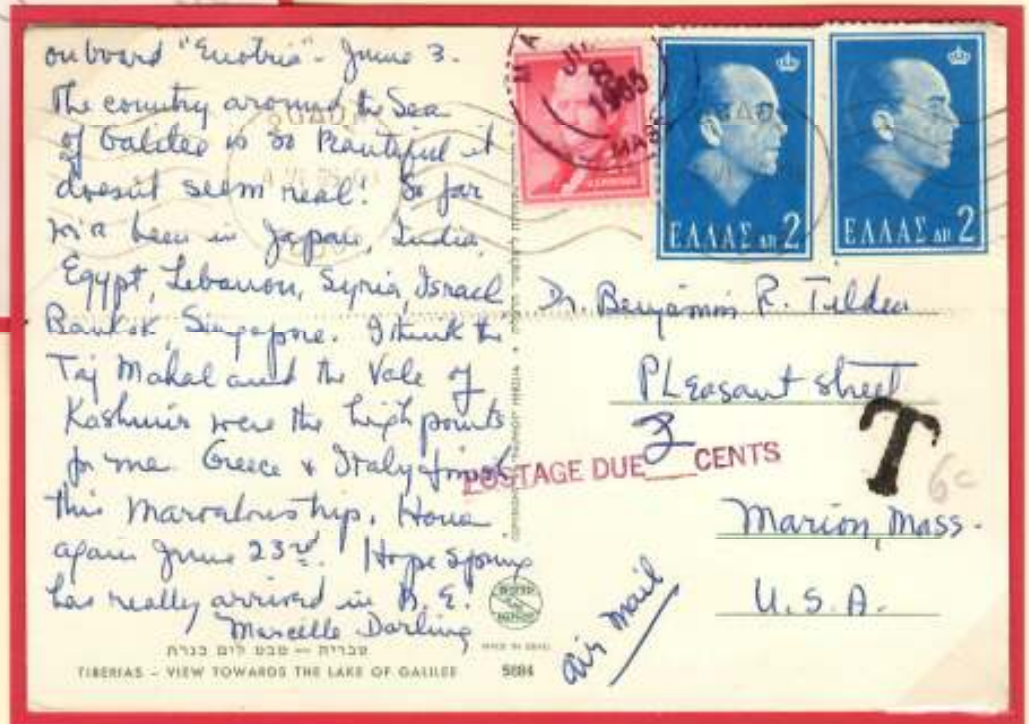 on board "Enotria" - June 3.
The country around the Sea
of Galilee is so beautiful it
doesn't seem real! So far
we've been in Japan, India,
Egypt, Lebanon, Syria, Israel
Bankok, Singapore. I think the
Taj Mahal and the Vale of
Kashmir were the high points
for me. Greece & Italy finish
this marvelous trip. Home
again June 23rd. Hope spring
has really arrived in N.E.
Marcelle Darling
טבריה — מבט לים כנרת
TIBERIAS - VIEW TOWARDS THE LAKE OF GALILEE
5884
MADE IN ISRAEL
1965
MASS
ΕΛΛΑΣ ΔΡ 2
ΕΛΛΑΣ ΔΡ 2
Dr. Benjamin R. Tilden
Pleasant Street
3
POSTAGE DUE CENTS
T
6c
Marion, Mass.
U.S.A.
air mail